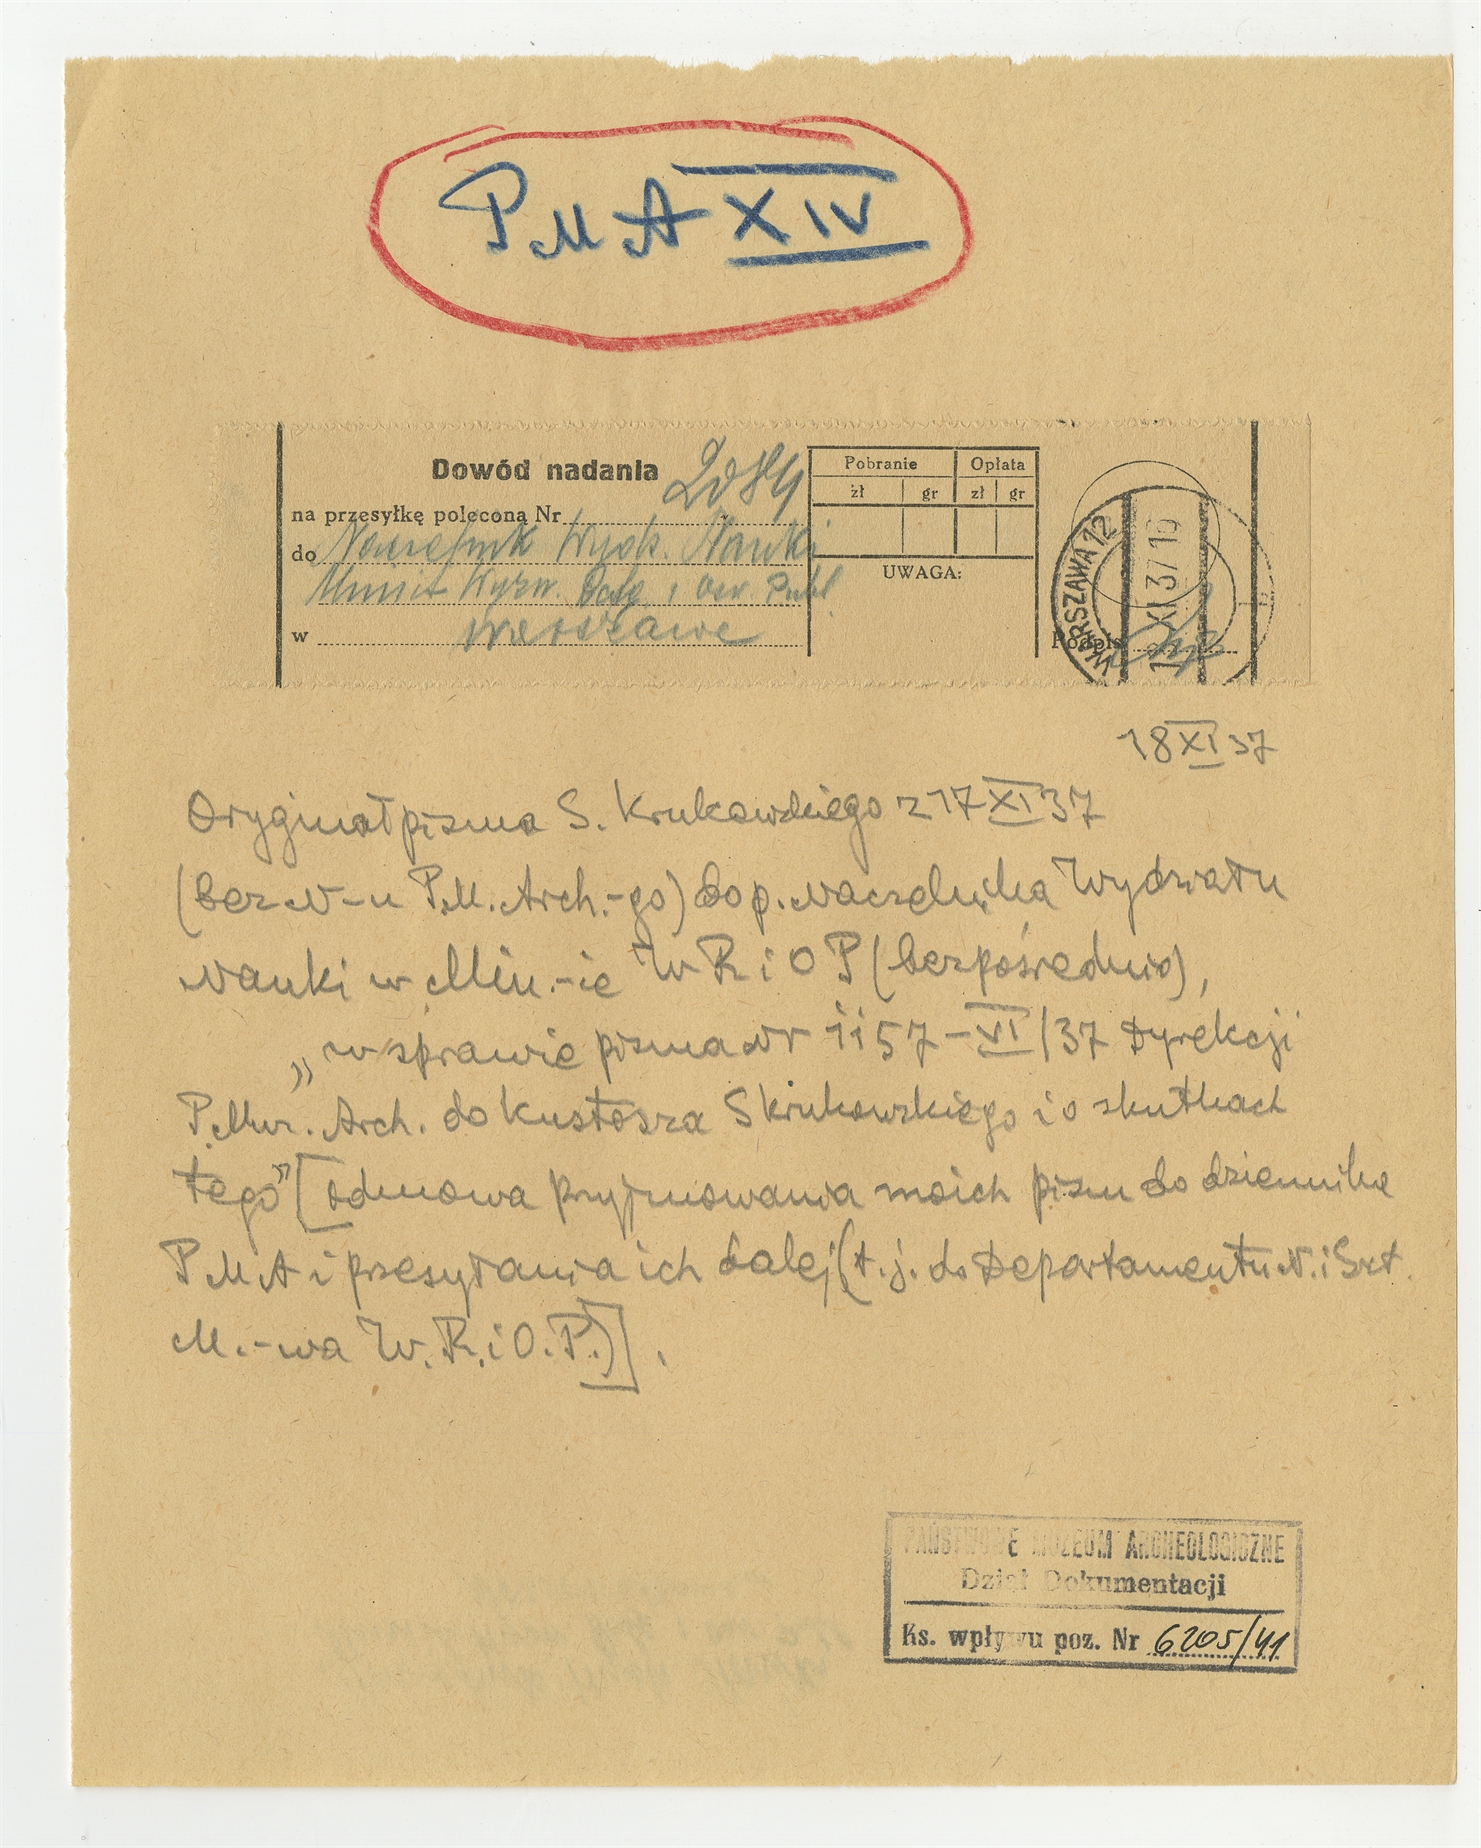 PMA XIV
Dowód nadania
na przesyłkę poleconą Nr 2084
do Naczelnik Wydz. Nauki
Minist Wyzn. Relg i Ośw. Publ
w Warszawie
Pobranie Opłata
zł gr zł gr
UWAGA:
WARSZAWA 12
XI 37
Podpis
18 XI 37
Oryginał pisma S. Krukowskiego z 17 XI 37
(bez N-u P.M. Arch.-go) do p. Naczelnika Wydziału
Nauki w Min.-ie W R i O P (bezpośrednio),
„w sprawie pisma Nr 1157-VI/37 Dyrekcji
P. Muz. Arch. do kustosza S Krukowskiego i o skutkach
tego” [odmowa przyjmowania moich pism do dziennika
P M A i przesyłania ich dalej (t.j. do Departamentu N. i Szt.
M.-wa W. R. i O. P.)].
PAŃSTWOWE MUZEUM ARCHEOLOGICZNE
Dział Dokumentacji
Ks. wpływu poz. Nr 6205/41